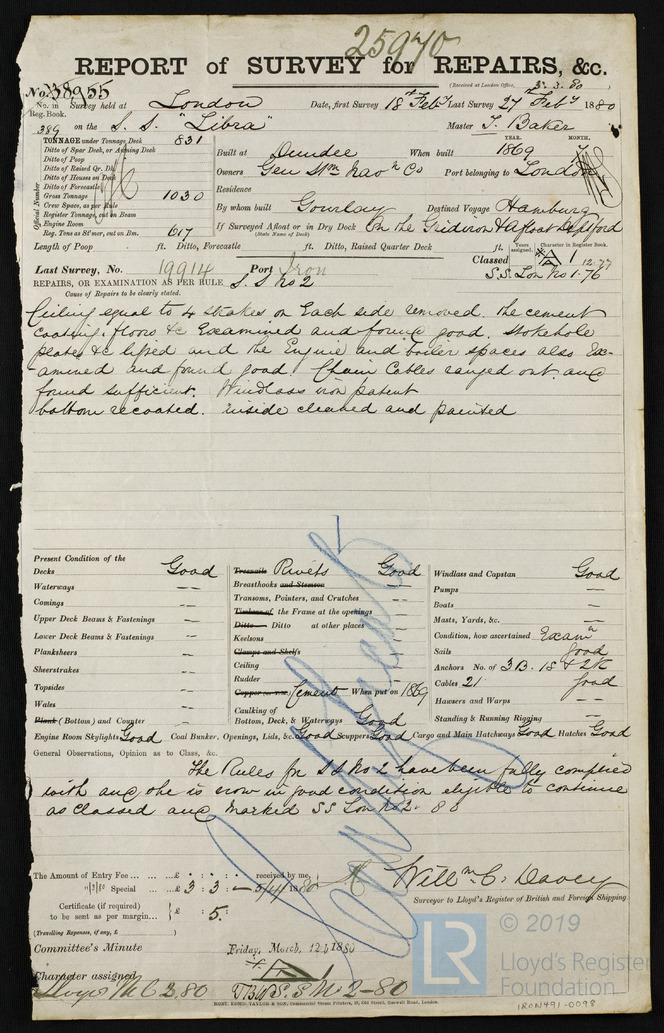 25970
REPORT of SURVEY for REPAIRS, &c.
(Received at London Office, 3.3.80)
No. 38955
No. in Reg. Book. Survey held at London Date, first Survey 18th Feby Last Survey 27th Feby 1880
389 on the S. S. "Libra" Master T. Baker
TONNAGE under Tonnage Deck 831
Ditto of Spar Deck, or Awning Deck
Ditto of Poop
Ditto of Raised Qr. Dk.
Ditto of Houses on Deck
Ditto of Forecastle
Gross Tonnage 1030
Crew Space, as per Rule
Register Tonnage, cut on Beam
Engine Room
Reg. Tons as St'mer, cut on Bm. 617
Official Number
Built at Dundee When built YEAR. 1869 MONTH. 7
Owners Gen Stm Navn Co Port belonging to London
Residence
By whom built Gourlay Destined Voyage Hamburg
If Surveyed Afloat or in Dry Dock On the Gridiron & Afloat Deptford
(State Name of Dock)
Length of Poop ft. Ditto, Forecastle ft. Ditto, Raised Quarter Deck ft.
Years assigned. Character in Register Book.
Classed A 1 12.77
S.S. Lon No 1.76
Last Survey, No. 19914 Port Iron
REPAIRS, OR EXAMINATION AS PER RULE S. S No 2
Cause of Repairs to be clearly stated.
Ceiling equal to 4 strakes on Each side removed. the cement
coating, floors &c Examined and found good. Stokehole
plates &c lifted and the Engine and boiler spaces also Ex-
amined and found good. Chain Cables ranged out and
found sufficient. Windlass iron patent
bottom recoated. inside cleaned and painted
Present Condition of the
Decks Good
Waterways —
Comings —
Upper Deck Beams & Fastenings —
Lower Deck Beams & Fastenings —
Planksheers —
Sheerstrakes —
Topsides —
Wales —
Plank (Bottom) and Counter —
Treenails Rivets Good
Breasthooks and Stemson —
Transoms, Pointers, and Crutches —
Timbers of the Frame at the openings —
Ditto Ditto at other places —
Keelsons —
Clamps and Shelfs —
Ceiling —
Rudder —
Cement When put on 1869
Caulking of
Bottom, Deck, & Waterways Good
Windlass and Capstan Good
Pumps —
Boats —
Masts, Yards, &c. —
Condition, how ascertained Examn
Sails good
Anchors No. of 3 B. 1 S & 2 K
Cables 21 good
Hawsers and Warps —
Standing & Running Rigging —
Engine Room Skylights Good Coal Bunker, Openings, Lids, &c. Good Scuppers Good Cargo and Main Hatchways Good Hatches Good
General Observations, Opinion as to Class, &c.
The Rules for S S No 2 have been fully complied
with and she is now in good condition eligible to continue
as Classed and Marked SS Lon No 2. 80
The Amount of Entry Fee ... ... £ : : received by me,
Special ... £ 3 : 3 : — 1880
Certificate (if required)
to be sent as per margin... £ : 5 :
(Travelling Expenses, if any, £ )
Willm C. Davey
Surveyor to Lloyd's Register of British and Foreign Shipping
Committee's Minute Friday, March, 12th 1880
Character assigned A 1
Lloyds M C 2.80 S.S. No 2-80
HORT. EDMD. TAYLOR & SON, Commercial Steam Printers, 19, Old Street, Goswell Road, London.
LR © 2019
Lloyd's Register
Foundation
IRON491-0098